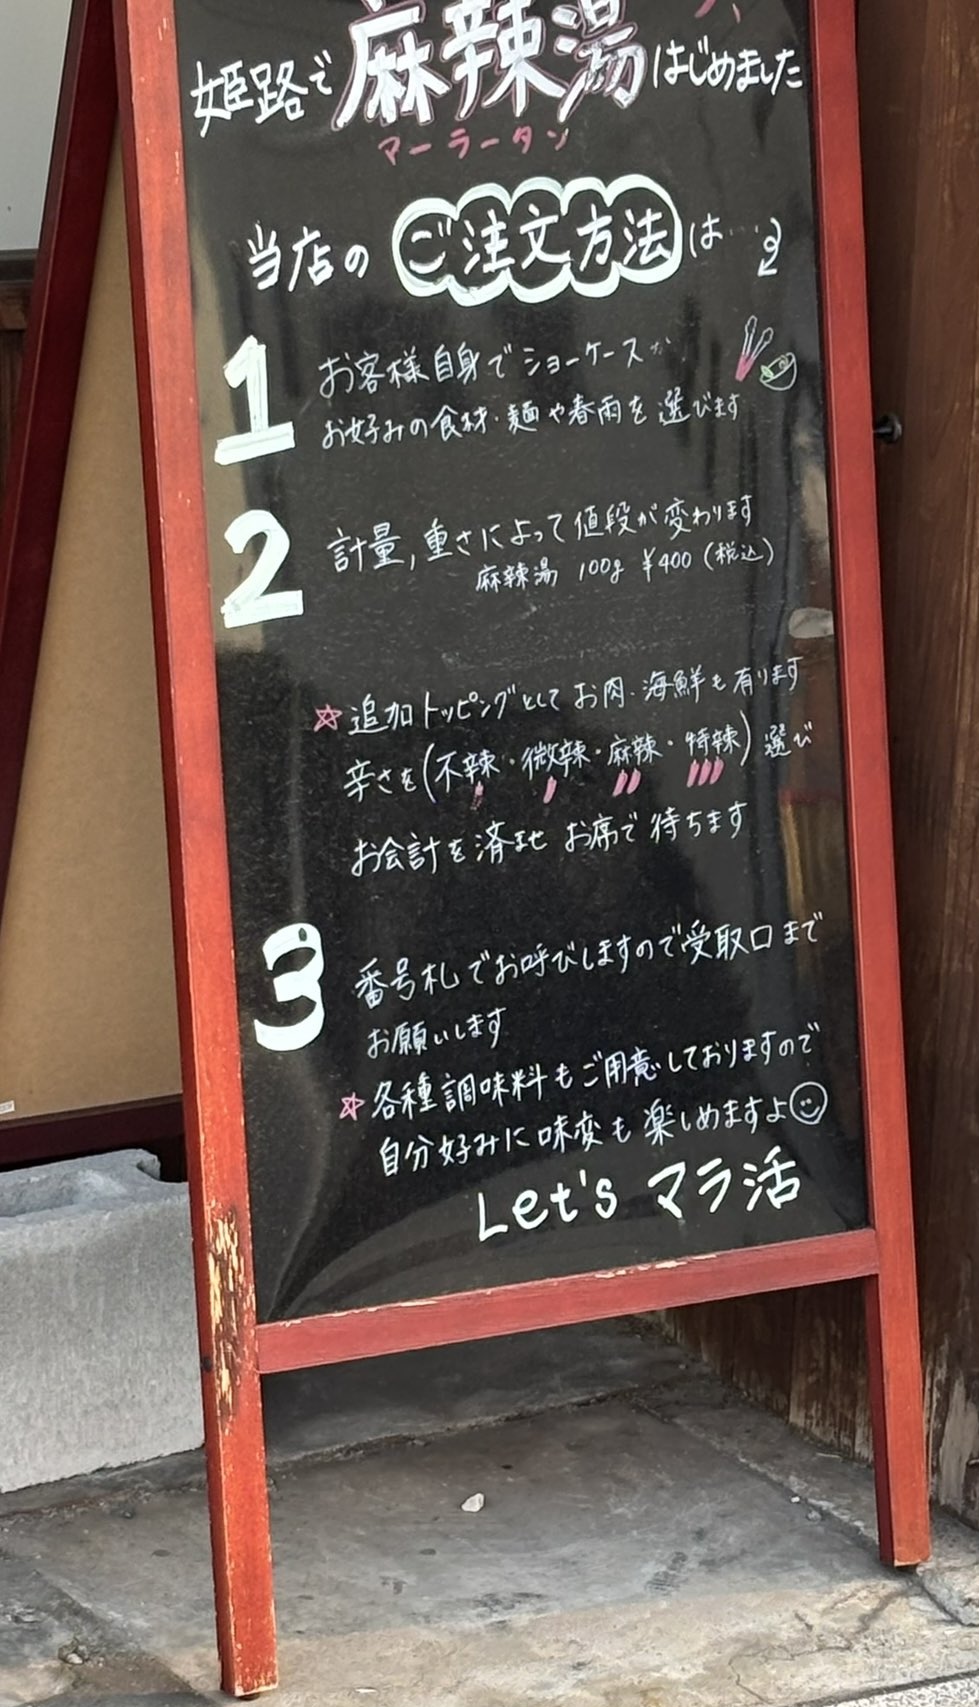 姫路で麻辣湯はじめました
マーラータン
当店のご注文方法は…
1 お客様自身でショーケースか
お好みの食材・麺や春雨を選びます
2 計量,重さによって値段が変わります
麻辣湯 100g ¥400(税込)
☆追加トッピングとしてお肉・海鮮も有ります
辛さを(不辣・微辣・麻辣・特辣)選び
お会計を済ませ お席で待ちます
3 番号札でお呼びしますので受取口まで
お願いします
☆各種調味料もご用意しておりますので
自分好みに味変も楽しめますよ
Let's マラ活